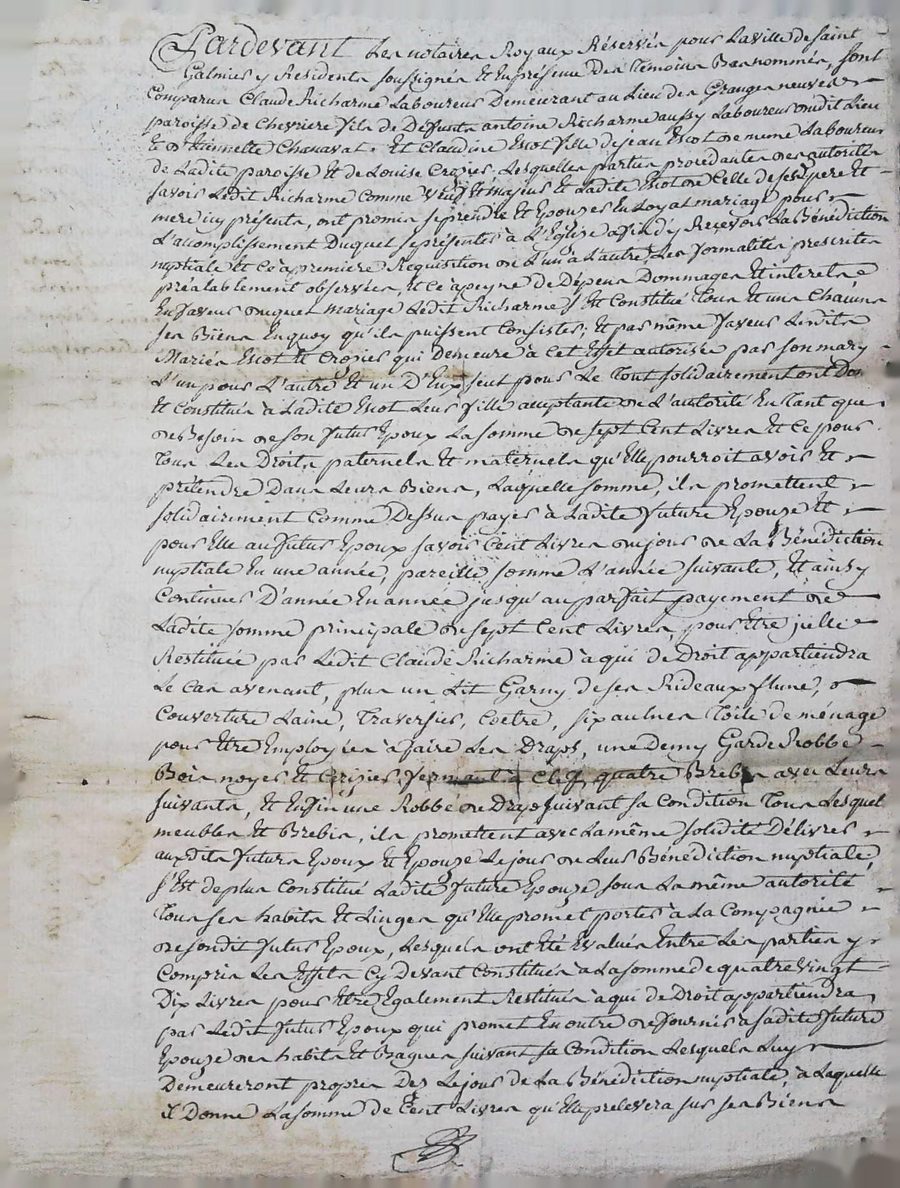 Pardevant Les notaires Royaux Réservés pour La ville de Saint
Galmier y Residents soussignés Et En présence des témoins Bas nommés, sont
Comparus Claude Richarme Laboureur Demeurant au Lieu des Granges neuves
paroisse de Chevriere fils de Défunts antoine Richarme aussy Laboureur dudit Lieu
Et Chanavat. Et Claudine Escot fille de jean Escot de meme Laboureur
de Ladite paroisse Et de Louise Crozier, Lesquelles parties procedantes de autorités
savoir Ledit Richarme Comme Et majeur Et Ladite Escot de Celle de ses pere Et
mere icy présents, ont promis se prendre Et Epouser En Loyal mariage pour
L'acomplissement Duquel se présenter à L'Eglise afin d'y Recevoir La Bénédiction
nuptiale Et ce à premiere Requisition de L'un à L'autre, Les formalités prescrites
préalablement observées, Et ce à peyne de Dépens Dommages Et interets
En faveur duquel mariage Ledit Richarme s'Est Constitué Tous Et uns Chacuns
ses Biens En quoy qu'ils puissent Consister; Et par même faveur Lesdits
Mariés Escot Et Crozier qui demeure à Cet Effet autorisée par son mary
L'un pour L'autre Et un D'Eux seul pour Le tout solidairement ont Donné
Et Constitué à Ladite Escot Leur fille acceptante de L'autorité En tant que
de Besoin de son futur Epoux La somme de sept Cent Livres Et ce pour
tous Les Droits paternels Et maternels qu'Elle pourroit avoir Et
prétendre Dans Leurs Biens, Laquelle somme, ils promettent
solidairement Comme Dessus payer à Ladite future Epouze Et
pour Elle au futur Epoux savoir Cent Livres du jour de La Bénédiction
nuptiale En une année, pareille somme L'année suivante, Et ainsy
Continuer D'année En année jusqu'au parfait payement de
Ladite somme principale de sept Cent Livres, pour Etre jcelle
Restituée par Ledit Claude Richarme à qui de Droit appartiendra
Le Cas avenant, plus un Lit Garny de ses Rideaux flune,
Couverture Laine, Traversier, Coetre, six aulnes Toile de ménage
pour Etre Employées à faire Des Draps, une Demy Garde Robbe
Bois noyer Et Cerizier fermant à Clef, quatre Brebis avec Leurs
suivants, Et Enfin une Robbe de Drap suivant sa Condition tous Lesquels
meubles Et Brebis, ils promettent avec La même solidité Délivrer
auxdits futurs Epoux Et Epouze Le jour de Leur Bénédiction nuptiale,
s'Est de plus Constitué Ladite future Epouze, sous La même autorité
Tous ses habits Et Linges qu'Elle promet porter à La Compagnie
de sondit futur Epoux, Lesquels ont Eté Evalués Entre Les parties y
Compris Les Effets Cy Devant Constitués à La somme de quatre vingt
Dix Livres pour Etre Egalement Restitués à qui de Droit appartiendra,
par Ledit futur Epoux qui promet En outre de fournir à sadite future
Epouze des habits Et Bagues suivant sa Condition Lesquels Luy
Demeureront propres Dez Le jour de La Bénédiction nuptiale, à Laquelle
il Donne La somme de Cent Livres qu'Elle prelevera sur ses Biens